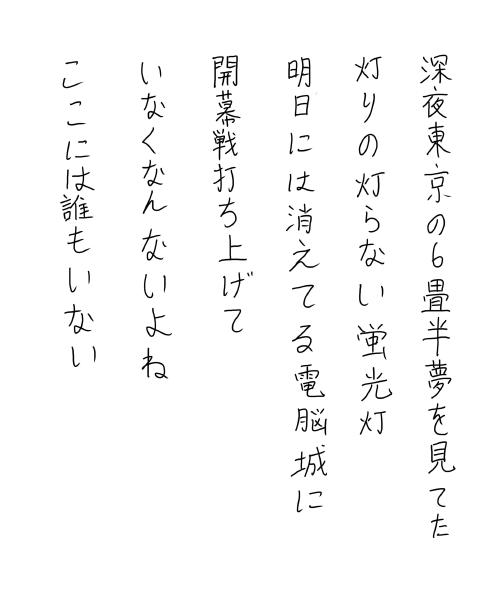 深夜東京の6畳半夢を見てた
灯りの灯らない蛍光灯
明日には消えてる電脳城に
開幕戦打ち上げて
いなくなんないよね
ここには誰もいない